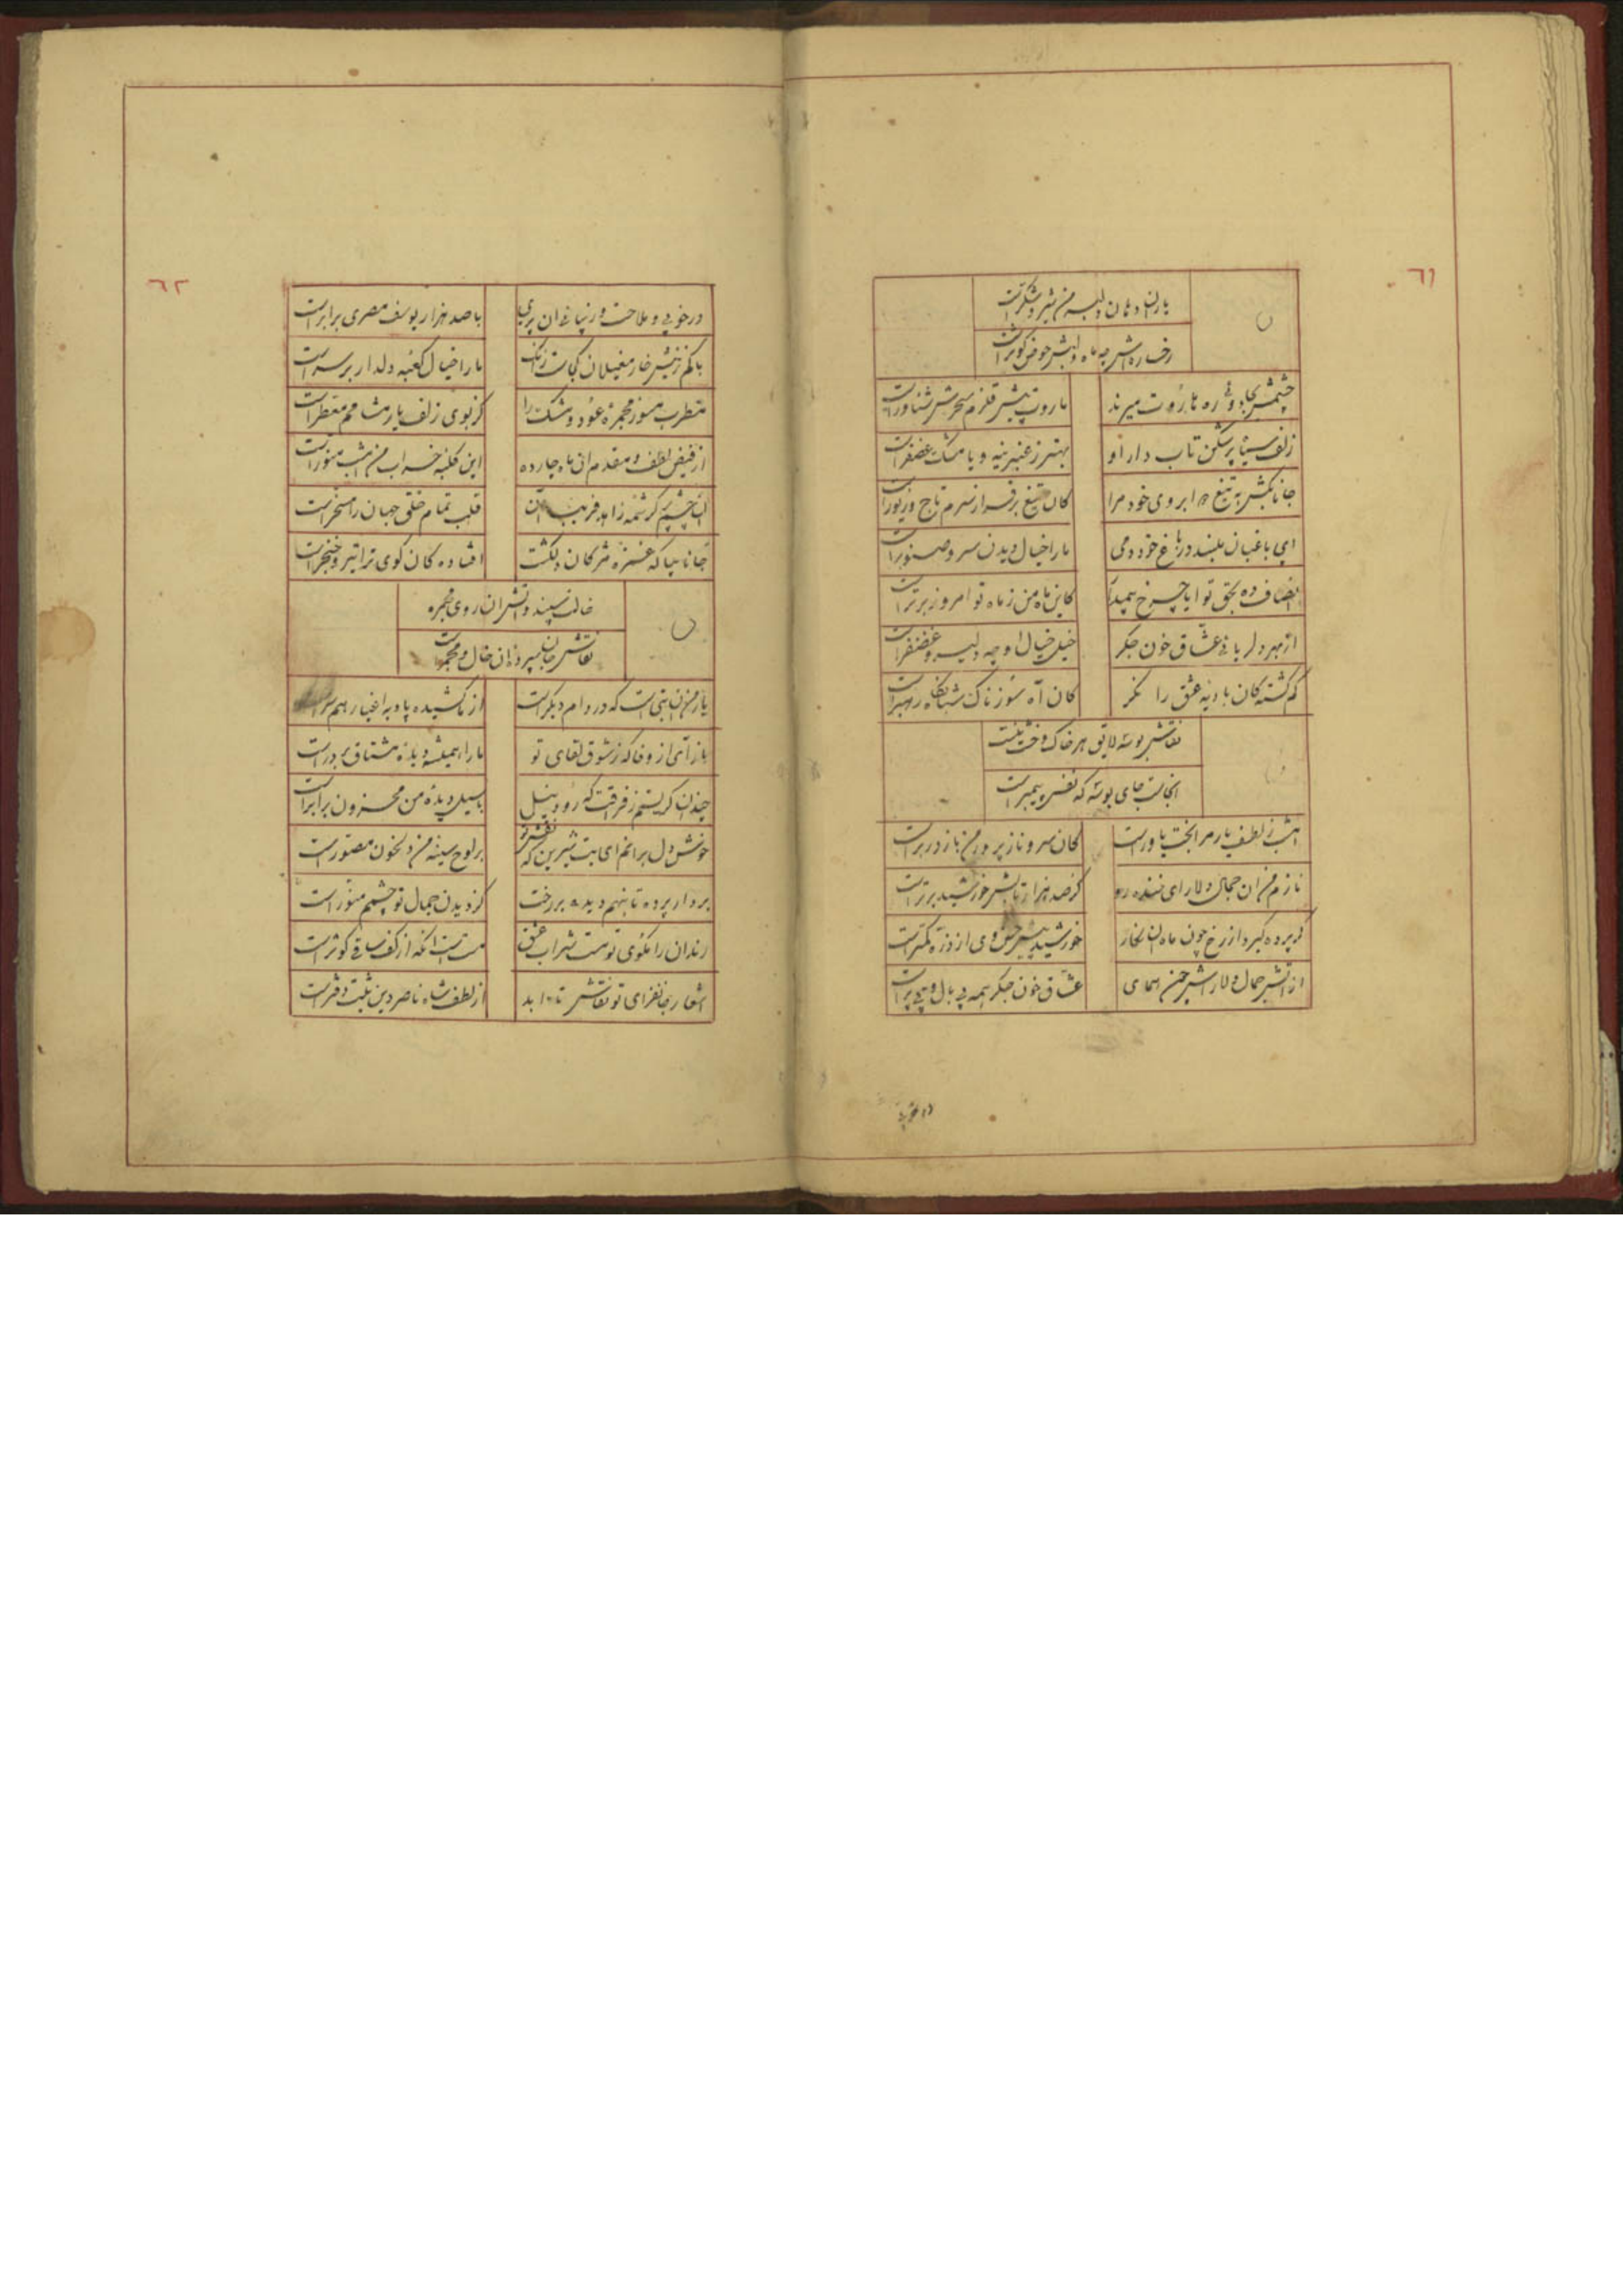 ٦١
یا آن دهان دلبر من شیر و شکرست
رخساره‌اش چه ماه و لبش حوض کوثرست
چشمش بجادوئی ره هاروت میزند
ماروت پیش قلزم سحرش شناورست
زلف سیاه پرشکن تاب دار او
بهتر ز عنبرینه و یا مشک
جانا بکش به تیغ دو ابروی خود مرا
کان تیغ بر فراز سرم تاج و زیورست
ای باغبان مبند در باغ خود دمی
ما را خیال دیدن سرو و صنوبرست
انصاف ده بحق تو ایا چرخ
کاین ماه من ز ماه تو امروز برترست
از بهر دلربائی عشاق خون جگر
خیل خیال او چه دلیر و غضنفرست
گم گشته‌کان بادیه عشق را نگر
کان آه سوزناک شبانگاه رهبرست
نقاش بوسه لایق هر خاک و خشت نیست
آنجاست جای بوسه که نقش پیمبرست
امشب ز لطف یار مرا بخت یاورست
کان سرو ناز پرور من باز در برست
نازم من آن جمال دلارای
کز صد هزار تابش خورشید برترست
گر پرده گیرد از رخ چون ماه آن نگار
خورشید پیش حسن وی از ذره کمترست
از آتش جمال دلارای
عشاق خون جگر همه بی بال و بی پرست
در خوبی
٦٢
در خوبی و ملاحت و زیبائی آن پری
با صد هزار یوسف مصری برابرست
باکم ز نیش خار مغیلان کجاست زانک
ما را خیال کعبه دلدار بر سرست
مطرب مسوز مجمره عود و مشک را
کز بوی زلف یار مشامم معطرست
از فیض لطف و مقدم آن ماه چارده
این کلبه خراب من امشب منورست
آن چشم پر کرشمه زاهد فریب آن
قلب تمام خلق جهان را مسخرست
جانا بیا که غمزه مژگان دلکشت
افتاده‌کان کوی ترا تیر و خنجرست
خالت سپند و آتش آن روی مجمره
نقاش جان سپرد ز آن خال و مجمرست
یار من آن بتی است که در دام دیگرست
از ما کشیده پا و به اغیار همسرست
بازآی از وفا که ز شوق لقای تو
ما را همیشه دیده مشتاق بر درست
چندان گریستم ز فرقت که رود نیل
با سیل دیده من محزون برابرست
خوش دل برانم ای بت شیرین که نقش تو
بر لوح سینه من دلخون مصورست
بردار پرده تا بنهم دیده بر رخت
کز دیدن جمال تو چشمم منورست
رندان را بکوی تو مست شراب عشق
مست است آنکه از کف ساقی کوثرست
اشعار جانفزای تو نقاش تا ابد
از لطف شاه ناصر دین ثبت دفترست